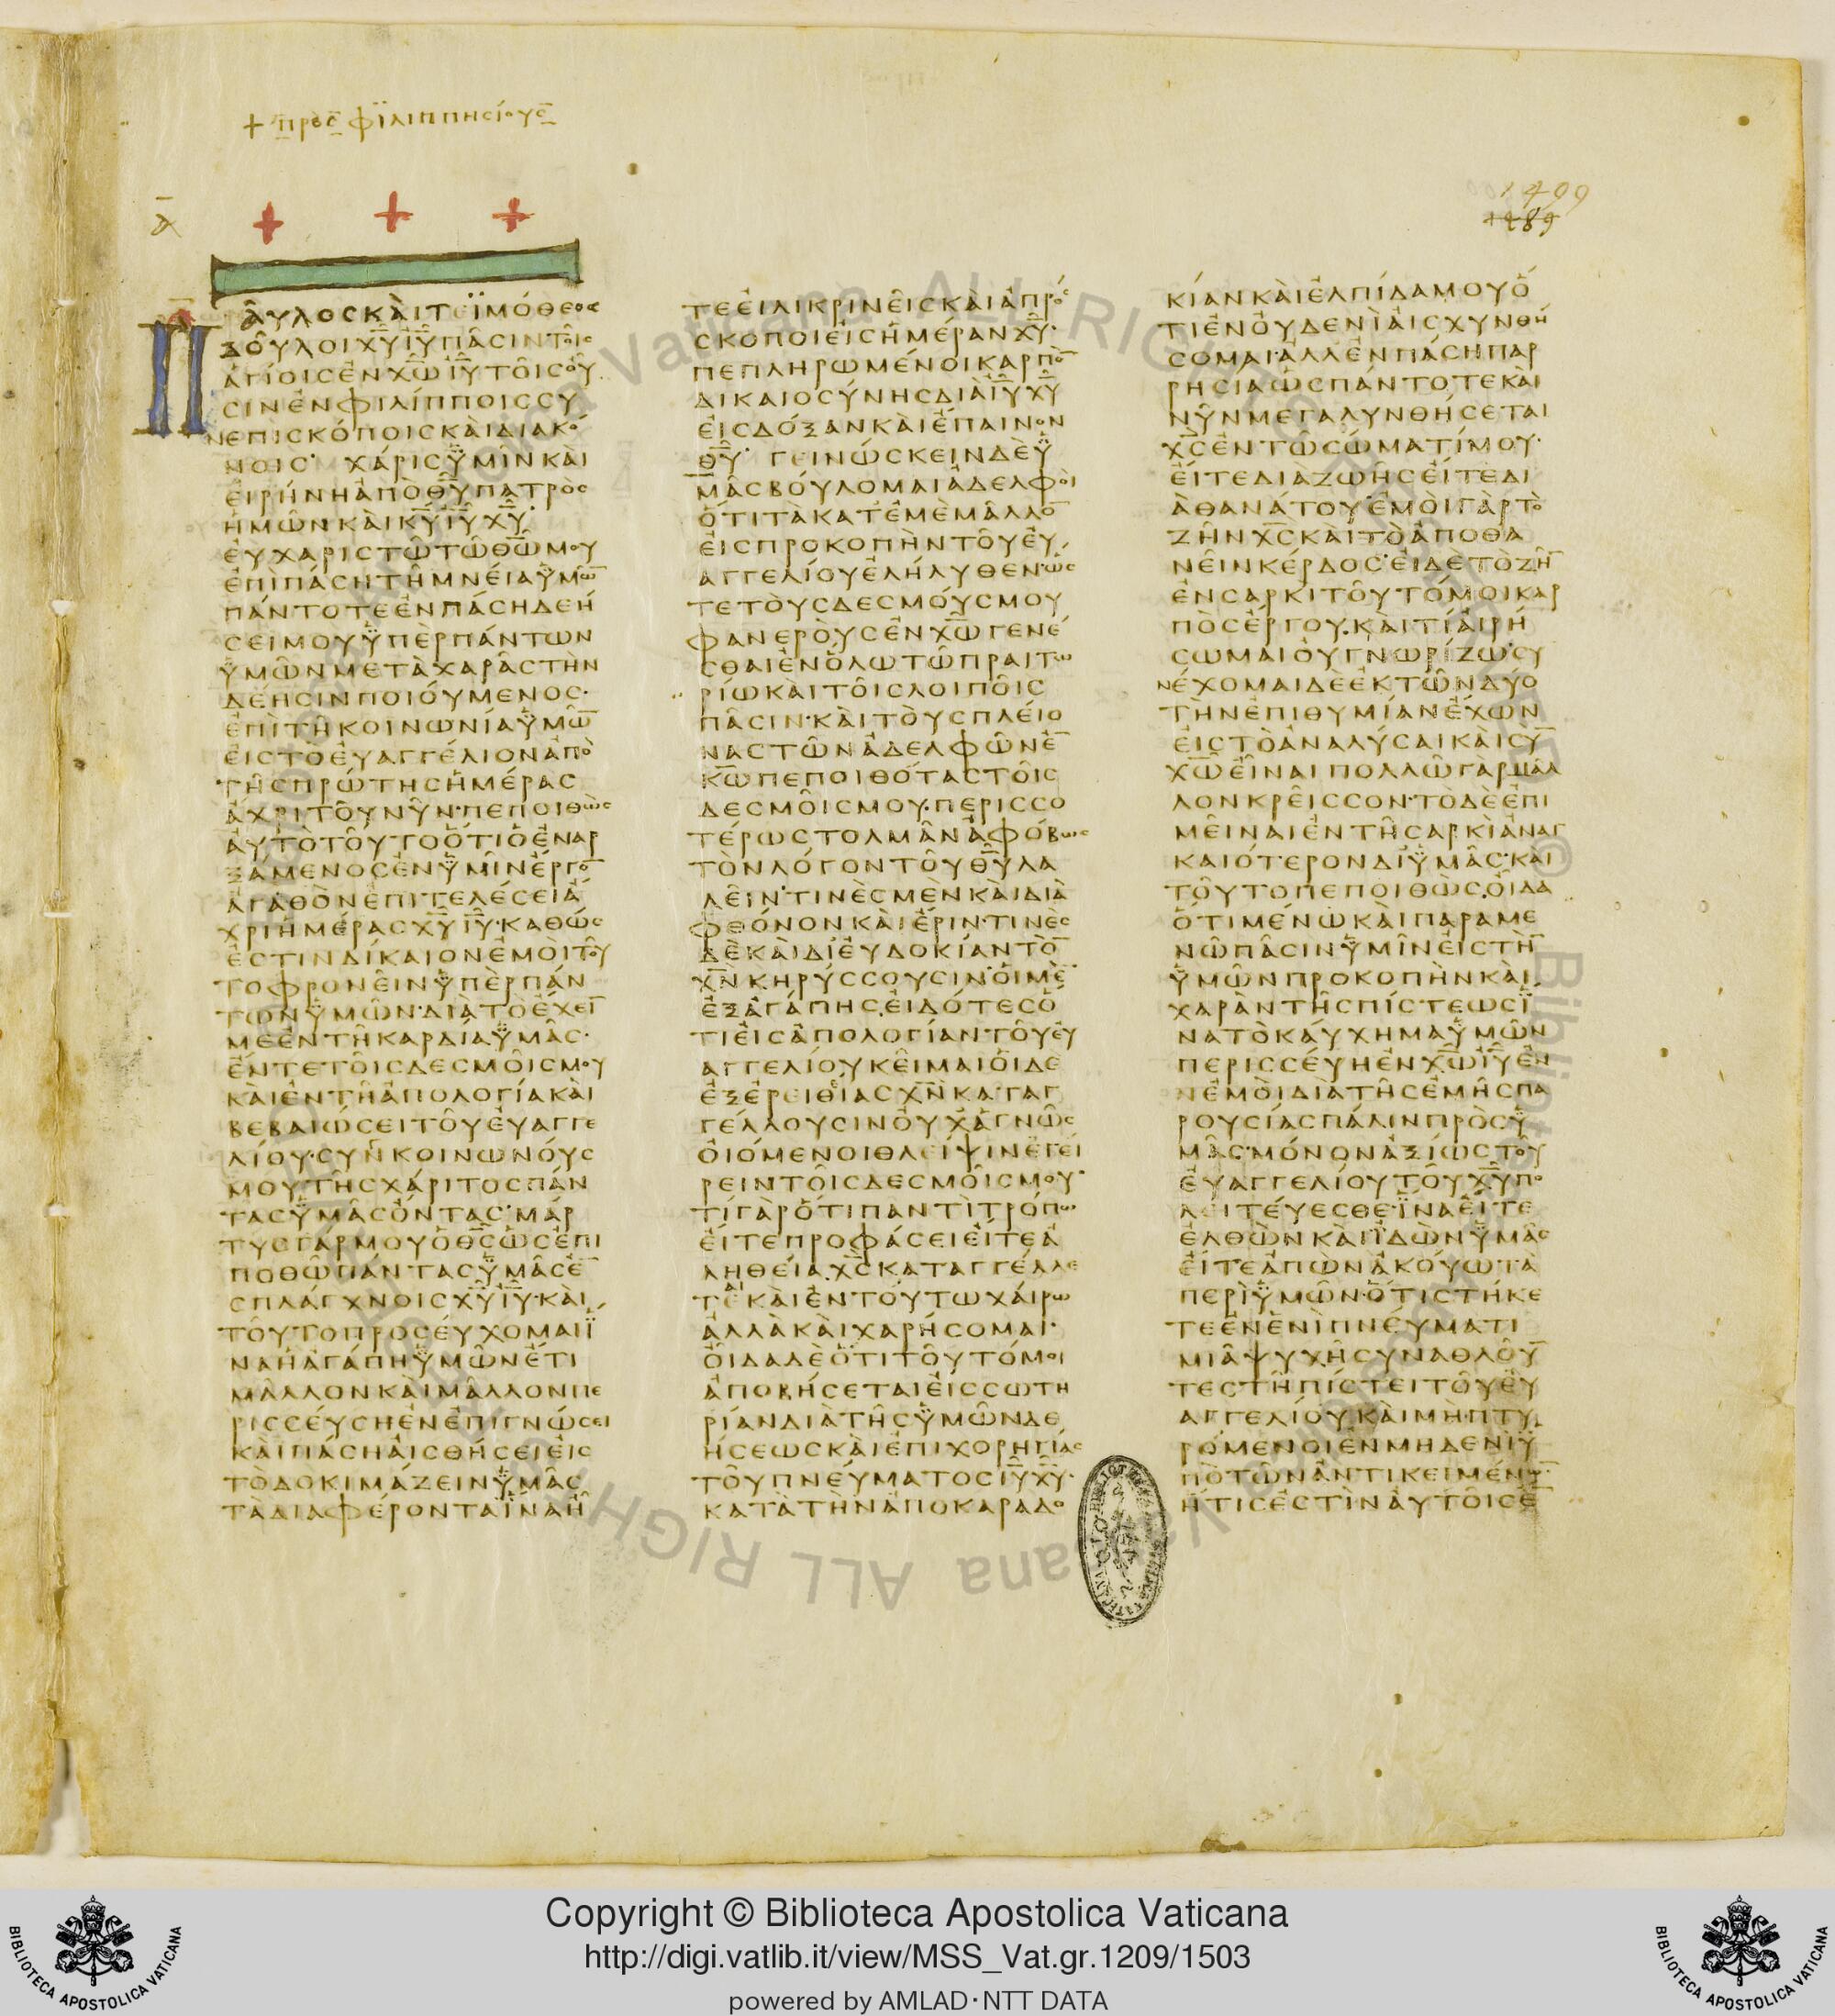 + πρὸς φϊλιππησίους
1499
1489
ᾱ
ΠΑΥΛΟCΚΑΙΤΕΙΜΟΘΕΟC
ΔΟΥΛΟΙΧΥΙΥΠΑCΙΝΤΟΙC
ΑΓΙΟΙCΕΝΧΩΙΥΤΟΙCΟΥ
CΙΝΕΝΦΙΛΙΠΠΟΙCCΥ
ΝΕΠΙCΚΟΠΟΙCΚΑΙΔΙΑΚΟ
ΝΟΙC· ΧΑΡΙCΥΜΙΝΚΑΙ
ΕΙΡΗΝΗΑΠΟΘΥΠΑΤΡΟC
ΗΜΩΝΚΑΙΚΥΙΥΧΥ·
ΕΥΧΑΡΙCΤΩΤΩΘΩΜΟΥ
ΕΠΙΠΑCΗΤΗΜΝΕΙΑΥΜΩ̅
ΠΑΝΤΟΤΕΕΝΠΑCΗΔΕΗ
CΕΙΜΟΥΥΠΕΡΠΑΝΤΩΝ
ΥΜΩΝΜΕΤΑΧΑΡΑCΤΗΝ
ΔΕΗCΙΝΠΟΙΟΥΜΕΝΟC·
ΕΠΙΤΗΚΟΙΝΩΝΙΑΥΜΩ̅
ΕΙCΤΟΕΥΑΓΓΕΛΙΟΝΑΠΟ
ΤΗCΠΡΩΤΗCΗΜΕΡΑC
ΑΧΡΙΤΟΥΝΥΝ·ΠΕΠΟΙΘΩC
ΑΥΤΟΤΟΥΤΟΟΤΙΟΕΝΑΡ
ΞΑΜΕΝΟCΕΝΥΜΙΝΕΡΓΟ̅
ΑΓΑΘΟΝΕΠΙΤΕΛΕCΕΙΑ
ΧΡΙΗΜΕΡΑCΧΥΙΥ·ΚΑΘΩC
ΕCΤΙΝΔΙΚΑΙΟΝΕΜΟΙΤΟΥ
ΤΟΦΡΟΝΕΙΝΥΠΕΡΠΑΝ
ΤΩΝΥΜΩΝ·ΔΙΑΤΟΕΧΕΙ̅
ΜΕΕΝΤΗΚΑΡΔΙΑΥΜΑC·
ΕΝΤΕΤΟΙCΔΕCΜΟΙCΜΟΥ
ΚΑΙΕΝΤΗΑΠΟΛΟΓΙΑΚΑΙ
ΒΕΒΑΙΩCΕΙΤΟΥΕΥΑΓΓΕ
ΛΙΟΥ·CΥΝΚΟΙΝΩΝΟΥC
ΜΟΥΤΗCΧΑΡΙΤΟCΠΑΝ
ΤΑCΥΜΑCΟΝΤΑC·ΜΑΡ
ΤΥCΓΑΡΜΟΥΟΘCΩCΕΠΙ
ΠΟΘΩΠΑΝΤΑCΥΜΑCΕ̅
CΠΛΑΓΧΝΟΙCΧΥΙΥ·ΚΑΙ
ΤΟΥΤΟΠΡΟCΕΥΧΟΜΑΙΙ
ΝΑΗΑΓΑΠΗΥΜΩΝΕΤΙ
ΜΑΛΛΟΝΚΑΙΜΑΛΛΟΝΠΕ
ΡΙCCΕΥCΗΕΝΕΠΙΓΝΩCΕΙ
ΚΑΙΠΑCΗΑΙCΘΗCΕΙΕΙC
ΤΟΔΟΚΙΜΑΖΕΙΝΥΜΑC
ΤΑΔΙΑΦΕΡΟΝΤΑΙΝΑΗ
ΤΕΕΙΛΙΚΡΙΝΕΙCΚΑΙΑΠΡΟC
CΚΟΠΟΙΕΙCΗΜΕΡΑΝΧΥ·
ΠΕΠΛΗΡΩΜΕΝΟΙΚΑΡΠΟ̅
ΔΙΚΑΙΟCΥΝΗCΔΙΑΙΥΧΥ
ΕΙCΔΟΞΑΝΚΑΙΕΠΑΙΝΟΝ
ΘΥ· ΓΕΙΝΩCΚΕΙΝΔΕΥ
ΜΑCΒΟΥΛΟΜΑΙΑΔΕΛΦΟΙ
ΟΤΙΤΑΚΑΤΕΜΕΜΑΛΛΟ̅
ΕΙCΠΡΟΚΟΠΗΝΤΟΥΕΥ
ΑΓΓΕΛΙΟΥΕΛΗΛΥΘΕΝΩC
ΤΕΤΟΥCΔΕCΜΟΥCΜΟΥ
ΦΑΝΕΡΟΥCΕΝΧΩΓΕΝΕ
CΘΑΙΕΝΟΛΩΤΩΠΡΑΙΤΩ
ΡΙΩΚΑΙΤΟΙCΛΟΙΠΟΙC
ΠΑCΙΝ·ΚΑΙΤΟΥCΠΛΕΙΟ
ΝΑCΤΩΝΑΔΕΛΦΩΝΕ̅
ΚΩΠΕΠΟΙΘΟΤΑCΤΟΙC
ΔΕCΜΟΙCΜΟΥ·ΠΕΡΙCCΟ
ΤΕΡΩCΤΟΛΜΑΝΑΦΟΒΩC
ΤΟΝΛΟΓΟΝΤΟΥΘΥΛΑ
ΛΕΙΝ·ΤΙΝΕCΜΕΝΚΑΙΔΙΑ
ΦΘΟΝΟΝΚΑΙΕΡΙΝ·ΤΙΝΕC
ΔΕΚΑΙΔΙΕΥΔΟΚΙΑΝΤΟ̅
ΧΝΚΗΡΥCCΟΥCΙΝ·ΟΙΜΕ̅
ΕΞΑΓΑΠΗCΕΙΔΟΤΕCΟ
ΤΙΕΙCΑΠΟΛΟΓΙΑΝΤΟΥΕΥ
ΑΓΓΕΛΙΟΥΚΕΙΜΑΙΟΙΔΕ
ΕΞΕΡΕΙΘΙΑCΧΝΚΑΤΑΓ
ΓΕΛΛΟΥCΙΝΟΥΧΑΓΝΩC
ΟΙΟΜΕΝΟΙΘΛΕΙΨΙΝΕΓΕΙ
ΡΕΙΝΤΟΙCΔΕCΜΟΙCΜΟΥ·
ΤΙΓΑΡΟΤΙΠΑΝΤΙΤΡΟΠΩ
ΕΙΤΕΠΡΟΦΑCΕΙΕΙΤΕΑ
ΛΗΘΕΙΑΧCΚΑΤΑΓΓΕΛΛΕ
ΤΑΙΚΑΙΕΝΤΟΥΤΩΧΑΙΡΩ
ΑΛΛΑΚΑΙΧΑΡΗCΟΜΑΙ·
ΟΙΔΑΔΕΟΤΙΤΟΥΤΟΜΟΙ
ΑΠΟΒΗCΕΤΑΙΕΙCCΩΤΗ
ΡΙΑΝΔΙΑΤΗCΥΜΩΝΔΕ
ΗCΕΩCΚΑΙΕΠΙΧΟΡΗΓΙΑC
ΤΟΥΠΝΕΥΜΑΤΟCΙΥΧΥ·
ΚΑΤΑΤΗΝΑΠΟΚΑΡΑΔΟ
ΚΙΑΝΚΑΙΕΛΠΙΔΑΜΟΥΟ
ΤΙΕΝΟΥΔΕΝΙΑΙCΧΥΝΘΗ
CΟΜΑΙ·ΑΛΛΕΝΠΑCΗΠΑΡ
ΡΗCΙΑΩCΠΑΝΤΟΤΕΚΑΙ
ΝΥΝΜΕΓΑΛΥΝΘΗCΕΤΑΙ
ΧCΕΝΤΩCΩΜΑΤΙΜΟΥ·
ΕΙΤΕΔΙΑΖΩΗCΕΙΤΕΔΙ
ΑΘΑΝΑΤΟΥ·ΕΜΟΙΓΑΡΤΟ
ΖΗΝΧCΚΑΙΤΟΑΠΟΘΑ
ΝΕΙΝΚΕΡΔΟC·ΕΙΔΕΤΟΖΗ̅
ΕΝCΑΡΚΙΤΟΥΤΟΜΟΙΚΑΡ
ΠΟCΕΡΓΟΥ·ΚΑΙΤΙΑΙΡΗ
CΩΜΑΙΟΥΓΝΩΡΙΖΩ·CΥ
ΝΕΧΟΜΑΙΔΕΕΚΤΩΝΔΥΟ
ΤΗΝΕΠΙΘΥΜΙΑΝΕΧΩΝ
ΕΙCΤΟΑΝΑΛΥCΑΙΚΑΙCΥ̅
ΧΩΕΙΝΑΙΠΟΛΛΩΓΑΡΜΑΛ
ΛΟΝΚΡΕΙCCΟΝ·ΤΟΔΕΕΠΙ
ΜΕΙΝΑΙΕΝΤΗCΑΡΚΙΑΝΑΓ
ΚΑΙΟΤΕΡΟΝΔΙΥΜΑC·ΚΑΙ
ΤΟΥΤΟΠΕΠΟΙΘΩCΟΙΔΑ
ΟΤΙΜΕΝΩΚΑΙΠΑΡΑΜΕ
ΝΩΠΑCΙΝΥΜΙΝΕΙCΤΗ̅
ΥΜΩΝΠΡΟΚΟΠΗΝΚΑΙ
ΧΑΡΑΝΤΗCΠΙCΤΕΩCΙ
ΝΑΤΟΚΑΥΧΗΜΑΥΜΩΝ
ΠΕΡΙCCΕΥΗΕΝΧΩΙΥΕΝ
ΝΕΜΟΙΔΙΑΤΗCΕΜΗCΠΑ
ΡΟΥCΙΑCΠΑΛΙΝΠΡΟCΥ
ΜΑC·ΜΟΝΟΝΑΞΙΩCΤΟΥ
ΕΥΑΓΓΕΛΙΟΥΤΟΥΧΥΠΟ
ΛΕΙΤΕΥΕCΘΕ·ΙΝΑΕΙΤΕ
ΕΛΘΩΝΚΑΙΙΔΩΝΥΜΑC
ΕΙΤΕΑΠΩΝΑΚΟΥΩΤΑ
ΠΕΡΙΥΜΩΝ·ΟΤΙCΤΗΚΕ
ΤΕΕΝΕΝΙΠΝΕΥΜΑΤΙ
ΜΙΑΨΥΧΗCΥΝΑΘΛΟΥ̅
ΤΕCΤΗΠΙCΤΕΙΤΟΥΕΥ
ΑΓΓΕΛΙΟΥΚΑΙΜΗΠΤΥ
ΡΟΜΕΝΟΙΕΝΜΗΔΕΝΙΥ
ΠΟΤΩΝΑΝΤΙΚΕΙΜΕΝΩ̅·
ΗΤΙCΕCΤΙΝΑΥΤΟΙCΕ̅
Copyright © Biblioteca Apostolica Vaticana
http://digi.vatlib.it/view/MSS_Vat.gr.1209/1503
powered by AMLAD·NTT DATA
BIBLIOTECA APOSTOLICA VATICANA
BIBLIOTECA APOSTOLICA VATICANA